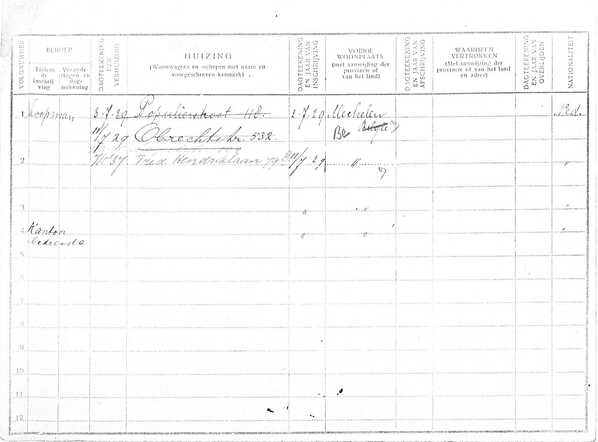 VOLGNUMMER
BEROEP
Tijdens de inschrijving
Verandering
DAGTEEKENING DER VERHUIZING
HUIZING
(Woonwagens en schepen met naam en
voorgeschreven kenmerk)
DAGTEEKENING EN JAAR VAN INSCHRIJVING
VORIGE WOONPLAATS
(met aanwijzing der provincie of van het land)
DAGTEEKENING EN JAAR VAN AFSCHRIJVING
WAARHEEN VERTROKKEN
(Met aanwijzing der provincie of van het land en adres)
DAGTEEKENING EN JAAR VAN OVERLIJDEN
NATIONALITEIT
1 Koopman 3.7.29 Populierstraat 118. 2.7.29 Mechelen Ned.
11/7 29 Obrechtstr. 532. Be België
2 Fred. Hendriklaan 79 11/7 29 " "
3 " " "
4 Kantoor " " "
bediende
5
6
7
8
9
10
11
12